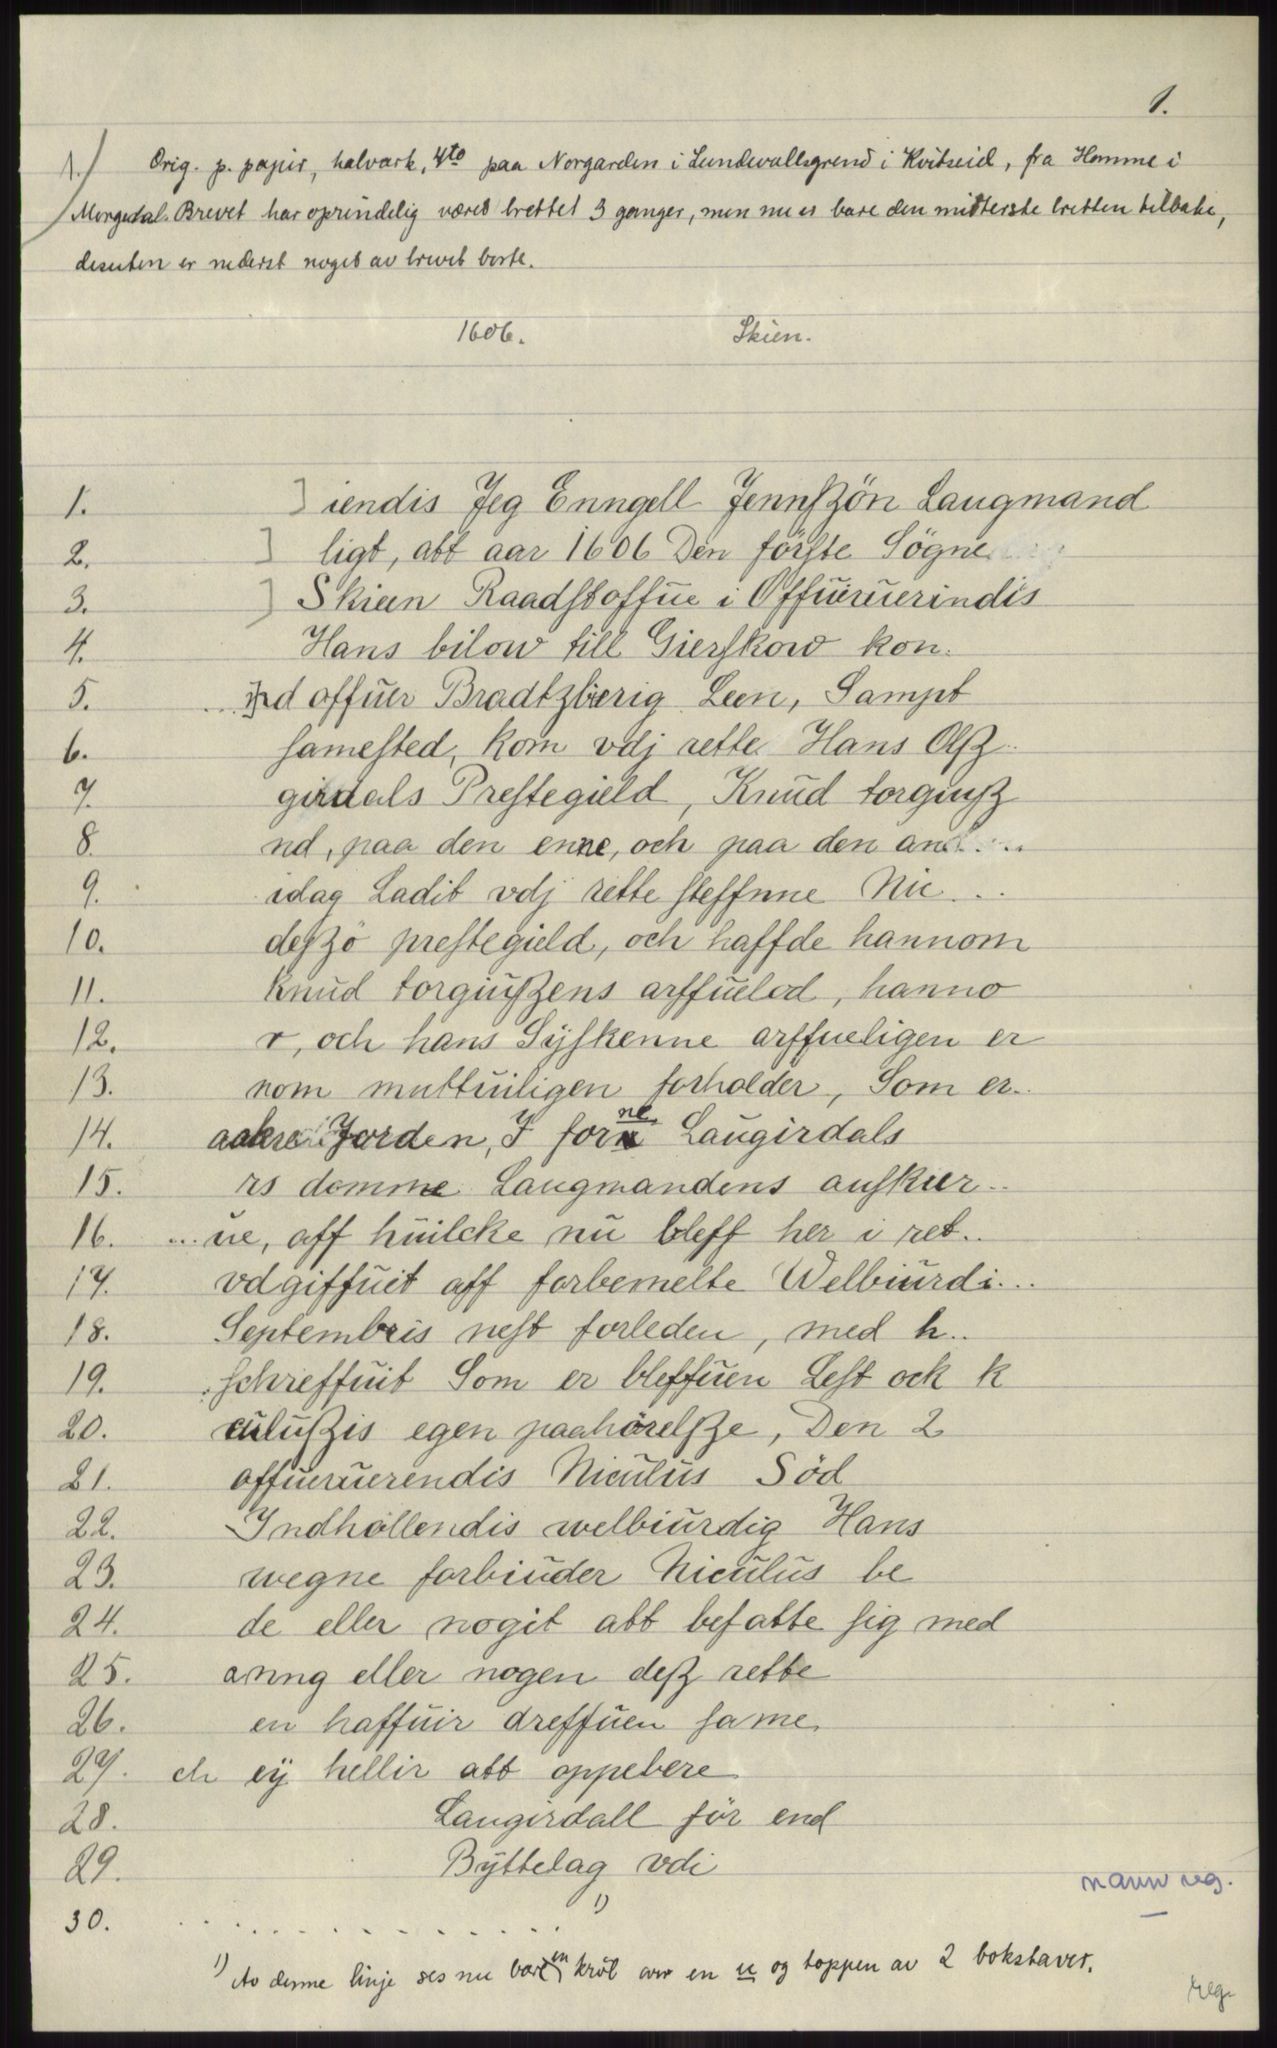 1.
1./ Orig. p. papir, halvark, 4to paa Norgarden i Lundevallsgrend i Kvitseid, fra Homme i
Morgedal. Brevet har oprindelig været brettet 3 ganger, men nu er bare den midterste bretten tilbake,
desuten er nederst noget av brevet borte.
1606. Skien.
1. ] iendis Jeg Enngell Jennszön Laugmand
2. ] ligt, att aar 1606 Den förste Sögne
3. ] Skien Raadstoffue i Offueruerindis
4. Hans bilow till Gierskow kon.
5. ...nd offuer Bradtzbierig Leen, Sampt
6. samested, kom vdj rette Hans Olsz..
7. girdals Prestegield, Knud torgiusz
8. nd, paa den enne, och paa den and....
9. idag Ladit vdj rette steffnne Nic...
10. deszö prestegield, och haffde hannom
11. Knud torgiuszens arffuelod, hanno
12. r, och hans Syskenne arffueligen er
13. nom muttuiligen forholder, Som er..
14. aakre Jorden, I forne Laugirdals
15. rs domme Laugmandens auskier..
16. ...ue, aff huilcke nu bleff her i ret..
17. vdgiffuit aff forbemelte Welbiurdi...
18. Septembris nest forleden, med h..
19. schreffuit Som er bleffuen Lest ock k
20. culuszis egen paahörelsze, Den 2
21. offueruerendis Niculus Söd
22. Indhollendis welbiurdig Hans
23. wegne forbiuder Niculus be
24. de eller nogit att befatte sig med
25. anng eller nogen desz rette
26. en haffuir dreffuen same
27. ch ey hellir att oppebere
28. Laugirdall för end
29. Byttelag vdi
30. . . . . . . . . . . . . . 1)
navn reg.
1) Av denne linje ses nu bare en krøl over en u og toppen av 2 bokstaver.
reg.